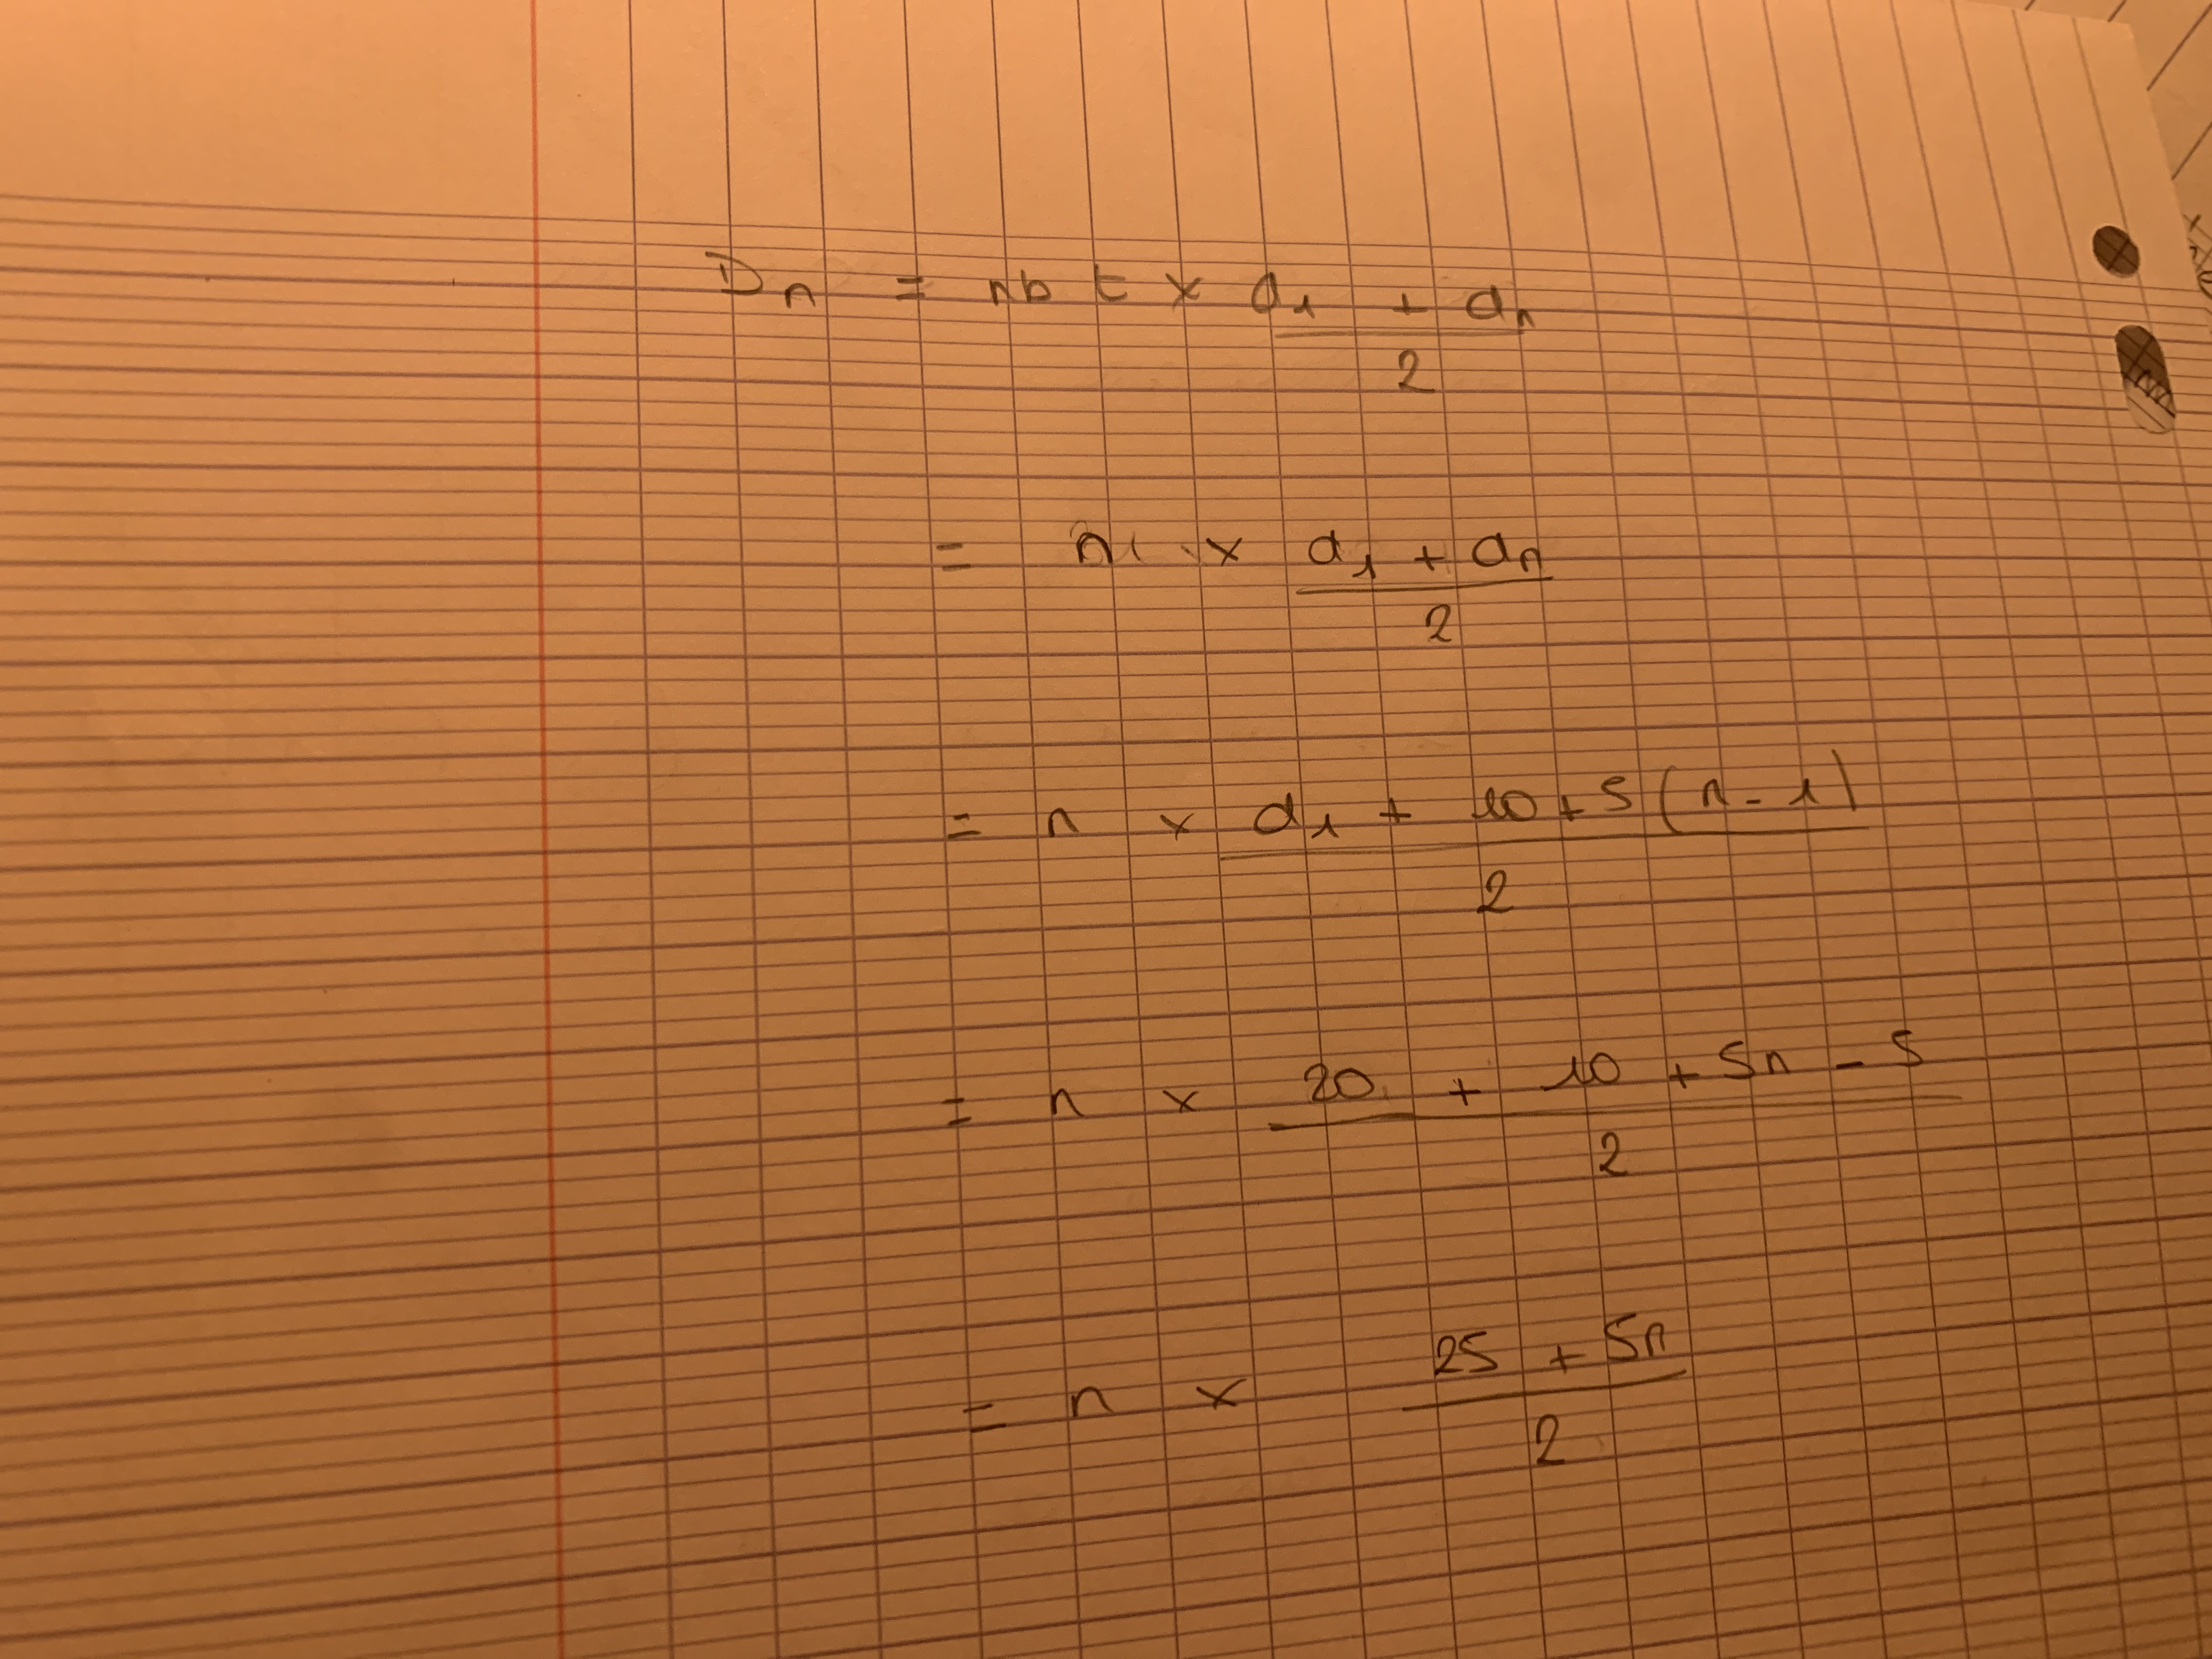 Dn = nb t × d1 + dn
2
= n × d1 + dn
2
= n × d1 + 10 + 5 (n - 1)
2
= n × 20 + 10 + 5n - 5
2
= n × 25 + 5n
2